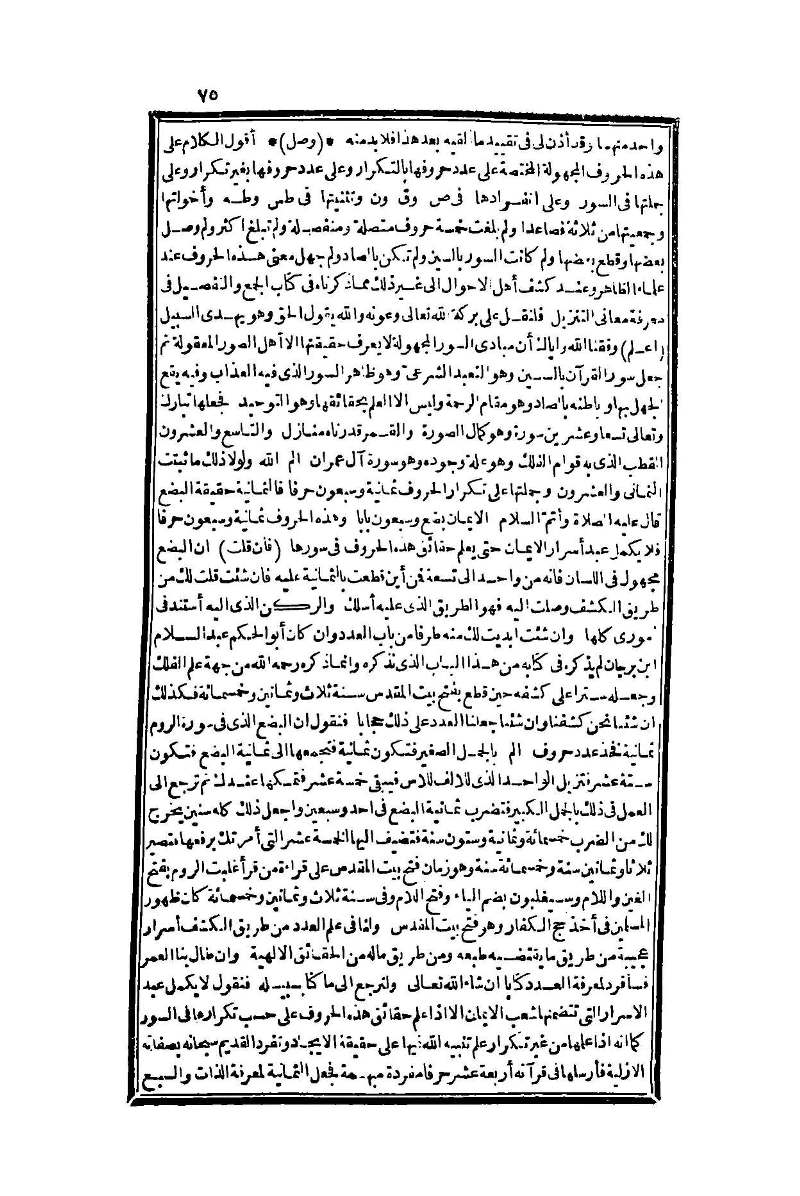 ٧٥
واحد منهما وقد أذن لى فى تقييد ما ألقيه بعد هذا فلابد منه *(وصل)* أقول الكلام على
هذه الحروف المجهولة المختصة على عدد حروفها بالتكرار وعلى عدد حروفها بغير تكرار وعلى
جملتها فى السور وعلى انفرادها فى ص وق ون وتثنيتها فى طس وطه وأخواتها
وجمعيتها من ثلاثة فصاعدا ولم بلغت خمسة حروف متصلة ومنفصلة ولم تبلغ اكثر ولم وصل
بعضها وقطع بعضها ولم كانت السور بالسين ولم تكن بالصاد ولم جهل معنى هذه الحروف عند
علماء الظاهر وعند كشف أهل الاحوال الى غير ذلك مما ذكرناه فى كتاب الجمع والتفصيل فى
معرفة معانى التنزيل فلنقل على بركة الله تعالى وعونه والله يقول الحق وهو يهدى السبيل
(اعلم) وفقنا الله وإياك أن مبادى السور المجهولة لا يعرف حقيقتها الا أهل الصور المعقولة ثم
جعل سور القرآن بالسين وهو التعبد الشرعى وهو ظاهر السور الذى فيه العذاب وفيه يقع
الجهل بها وباطنه بالصاد وهو مقام الرحمة وليس الا العلم بحقائقها وهو التوحيد فجعلها تبارك
وتعالى تسعا وعشرين سورة وهو كمال الصورة والقمر قدرناه منازل والتاسع والعشرون
القطب الذى به قوام الفلك وهو علة وجوده وهو سورة آل عمران الم الله ولولا ذلك ما ثبتت
الثمانى والعشرون وجملتها على تكرار الحروف ثمانية وسبعون حرفا فالثمانية حقيقة البضع
قال عليه الصلاة وأتم السلام الايمان بضع وسبعون بابا وهذه الحروف ثمانية وسبعون حرفا
فلا يكمل عبد أسرار الايمان حتى يعلم حقائق هذه الحروف فى سورها (فان قلت) ان البضع
مجهول فى اللسان فانه من واحد الى تسعة فمن أين قطعت بالثمانية عليه فان شئت قلت لك من
طريق الكشف وصلت اليه فهو الطريق الذى عليه أسلك والركن الذى اليه أستند فى
علومى كلها وان شئت أبديت لك منه طرفا من باب العدد وان كان أبو الحكم عبد السلام
ابن برجان لم يذكره فى كتابه من هذا الباب الذى نذكره وانما ذكره رحمه الله من جهة علم الفلك
وجعله سترا على كشفه حين قطع بفتح بيت المقدس سنة ثلاث وثمانين وخمسمائة فكذلك
ان شئنا نحن كشفنا وان شئنا جعلنا العدد على ذلك حجابا فنقول ان البضع الذى فى سورة الروم
ثمانية فخذ عدد حروف الم بالجزم الصغير فتكون ثمانية فتجمعها الى ثمانية البضع فتكون
ستة عشر فتزيل الواحد الذى للالف للاس فيبقى خمسة عشر فتمسكها عندك ثم ترجع الى
العمل فى ذلك بالجمل الكبير فتضرب ثمانية البضع فى احد وسبعين واجعل ذلك كله سنين يخرج
لك من الضرب خمسمائة وثمانية وستون سنة فتضيف اليها الخمسة عشر التى أمرتك برفعها فتصير
ثلاثا وثمانين سنة وخمسمائة سنة وهو زمان فتح بيت المقدس على قراءة من قرأ غلبت الروم بفتح
الغين واللام وسيغلبون بضم الياء وفتح اللام وفى سنة ثلاث وثمانين وخمسمائة كان ظهور
المسلمين فى أخذ حج الكفار وهو فتح بيت المقدس ولنا فى علم العدد من طريق الكشف أسرار
عجيبة من طريق ما يقتضيه طبعه ومن طريق ماله من الحقائق الالهية وان طال بنا العمر
فسأفرد لمعرفة العدد كتابا ان شاء الله تعالى ولنرجع الى ما كنا بسبيله فنقول لا يكمل عبد
الاسرار التى تتضمنها شعب الايمان الا اذا علم حقائق هذه الحروف على حسب تكرارها فى السور
كما انه اذا علمها من غير تكرار علم تنبيه الله فيها على حقيقة الايجاد وتفرد القديم سبحانه بصفاته
الازلية فأرسلها فى قرآنه أربعة عشر حرفا مفردة مبهمة فجعل الثمانية لمعرفة الذات والسبع